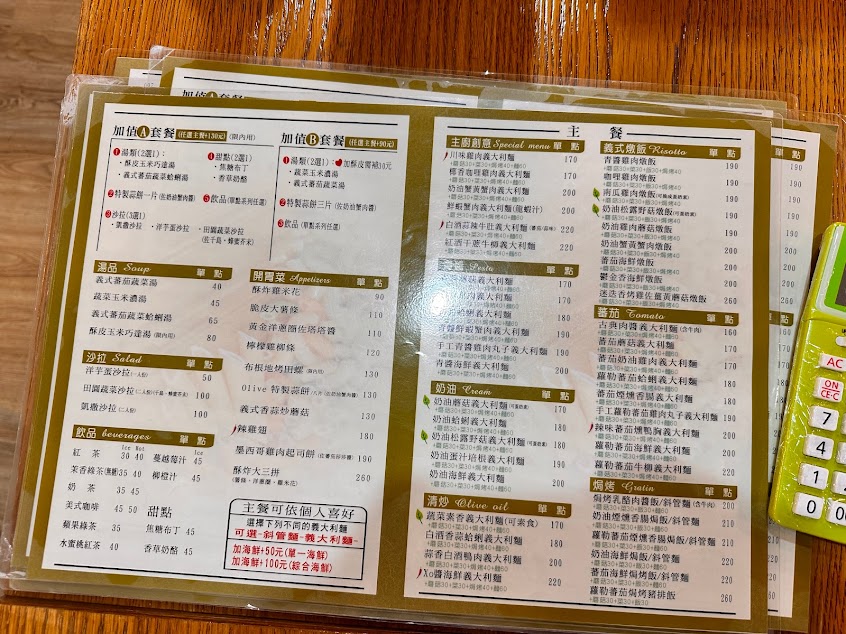 加值A套餐 (任選主餐+130元) (限內用)
❶湯類(2選1):
・酥皮玉米巧達湯
・義式蕃茄蔬菜蛤蜊湯
❷特製蒜餅一片 (佐奶油蟹肉醬)
❸沙拉(3選1)
・凱撒沙拉 ・洋芋蛋沙拉 ・田園蔬菜沙拉
(佐千島、蜂蜜芥末)
❹甜點(2選1)
・焦糖布丁
・香草奶酪
❺飲品(單點系列任選)
加值B套餐 (任選主餐+90元)
❶湯類(2選1): 加酥皮需補30元
・蔬菜玉米濃湯
・義式蕃茄蔬菜湯
❷特製蒜餅三片 (佐奶油蟹肉醬)
❸飲品(單點系列任選)
湯品 Soup 單 點
義式蕃茄蔬菜湯 40
蔬菜玉米濃湯 45
義式蕃茄蔬菜蛤蜊湯 65
酥皮玉米巧達湯 (限內用) 80
沙拉 Salad 單 點
洋芋蛋沙拉(一人份) 50
田園蔬菜沙拉(二人份)(千島、蜂蜜芥末) 100
凱撒沙拉(二人份) 100
飲品 beverages 單 點
Ice Hot Ice
紅 茶 30 40 蔓越莓汁 45
茉香綠茶(無糖) 35 40 柳橙汁 45
奶 茶 35 45
美式咖啡 45 50
蘋果綠茶 35
水蜜桃紅茶 40
甜點
焦糖布丁 45
香草奶酪 45
開胃菜 Appetizers 單 點
酥炸雞米花 90
脆皮大薯條 110
黃金洋蔥圈佐塔塔醬 110
檸檬雞柳條 120
布根地烤田螺 (限內用) 130
Olive 特製蒜餅 (六片)(佐奶油蟹肉醬)
義式香蒜炒蘑菇 130
辣雞翅 180
墨西哥雞肉起司餅 190
酥炸大三拼 260
(薯條、洋蔥圈、雞米花)
主餐可依個人喜好
選擇下列不同的義大利麵
可選-斜管麵-義大利麵-
加海鮮+50元(單一海鮮)
加海鮮+100元(綜合海鮮)
主 餐
主廚創意 Special menu 單 點
川味雞肉義大利麵 170
椰香咖哩雞肉義大利麵 170
奶油蟹黃蟹肉義大利麵 200
鮮蝦蟹肉義大利麵(龍蝦汁) 200
白酒蒜辣牛肚義大利麵 220
紅酒干蔥牛柳義大利麵 220
Pesto 單 點
義大利麵 170
義大利麵 170
義大利麵 190
鮮蝦蟹肉義大利麵
手工青醬雞肉丸子義大利麵 190
青醬海鮮義大利麵 200
奶油 Cream 單 點
奶油蘑菇義大利麵(可蛋奶素) 170
奶油蛤蜊義大利麵
奶油松露野菇義大利麵(可蛋奶素)
奶油蛋汁培根義大利麵
奶油海鮮義大利麵 200
清炒 Olive oil 單 點
蔬菜素香義大利麵(可素食) 170
白酒香蒜蛤蜊義大利麵 190
蒜香白酒鴨肉義大利麵 220
Xo醬海鮮義大利麵 220
義式燉飯 Risotto 單 點
青醬雞肉燉飯 190
咖哩雞肉燉飯 190
南瓜雞肉燉飯(可換成蛋奶素) 190
奶油松露野菇燉飯(可蛋奶素) 190
奶油雞肉蘑菇燉飯 190
奶油蟹黃蟹肉燉飯 200
蕃茄海鮮燉飯 200
鬱金香海鮮燉飯 200
迷迭香烤雞佐薑黃蘑菇燉飯 200
蕃茄 Tomato 單 點
古典肉醬義大利麵(含牛肉) 160
蕃茄蘑菇義大利麵 170
蕃茄奶油雞肉義大利麵 180
蘿勒蕃茄蛤蜊義大利麵 180
蕃茄煙燻香腸義大利麵 190
手工蘿勒蕃茄雞肉丸子義大利麵 190
辣味蕃茄燻鴨胸義大利麵 200
蘿勒蕃茄海鮮義大利麵 200
蘿勒蕃茄牛柳義大利麵 220
焗烤 Gratin 單 點
焗烤乳酪肉醬飯/斜管麵(含牛肉) 200
奶油煙燻香腸焗飯/斜管麵 210
蘿勒蕃茄煙燻香腸焗飯/斜管麵 210
奶油海鮮焗飯/斜管麵 220
蕃茄海鮮焗飯/斜管麵 220
蘿勒蕃茄焗烤豬排飯 220
AC
ON
CE·C
7
4
1
0